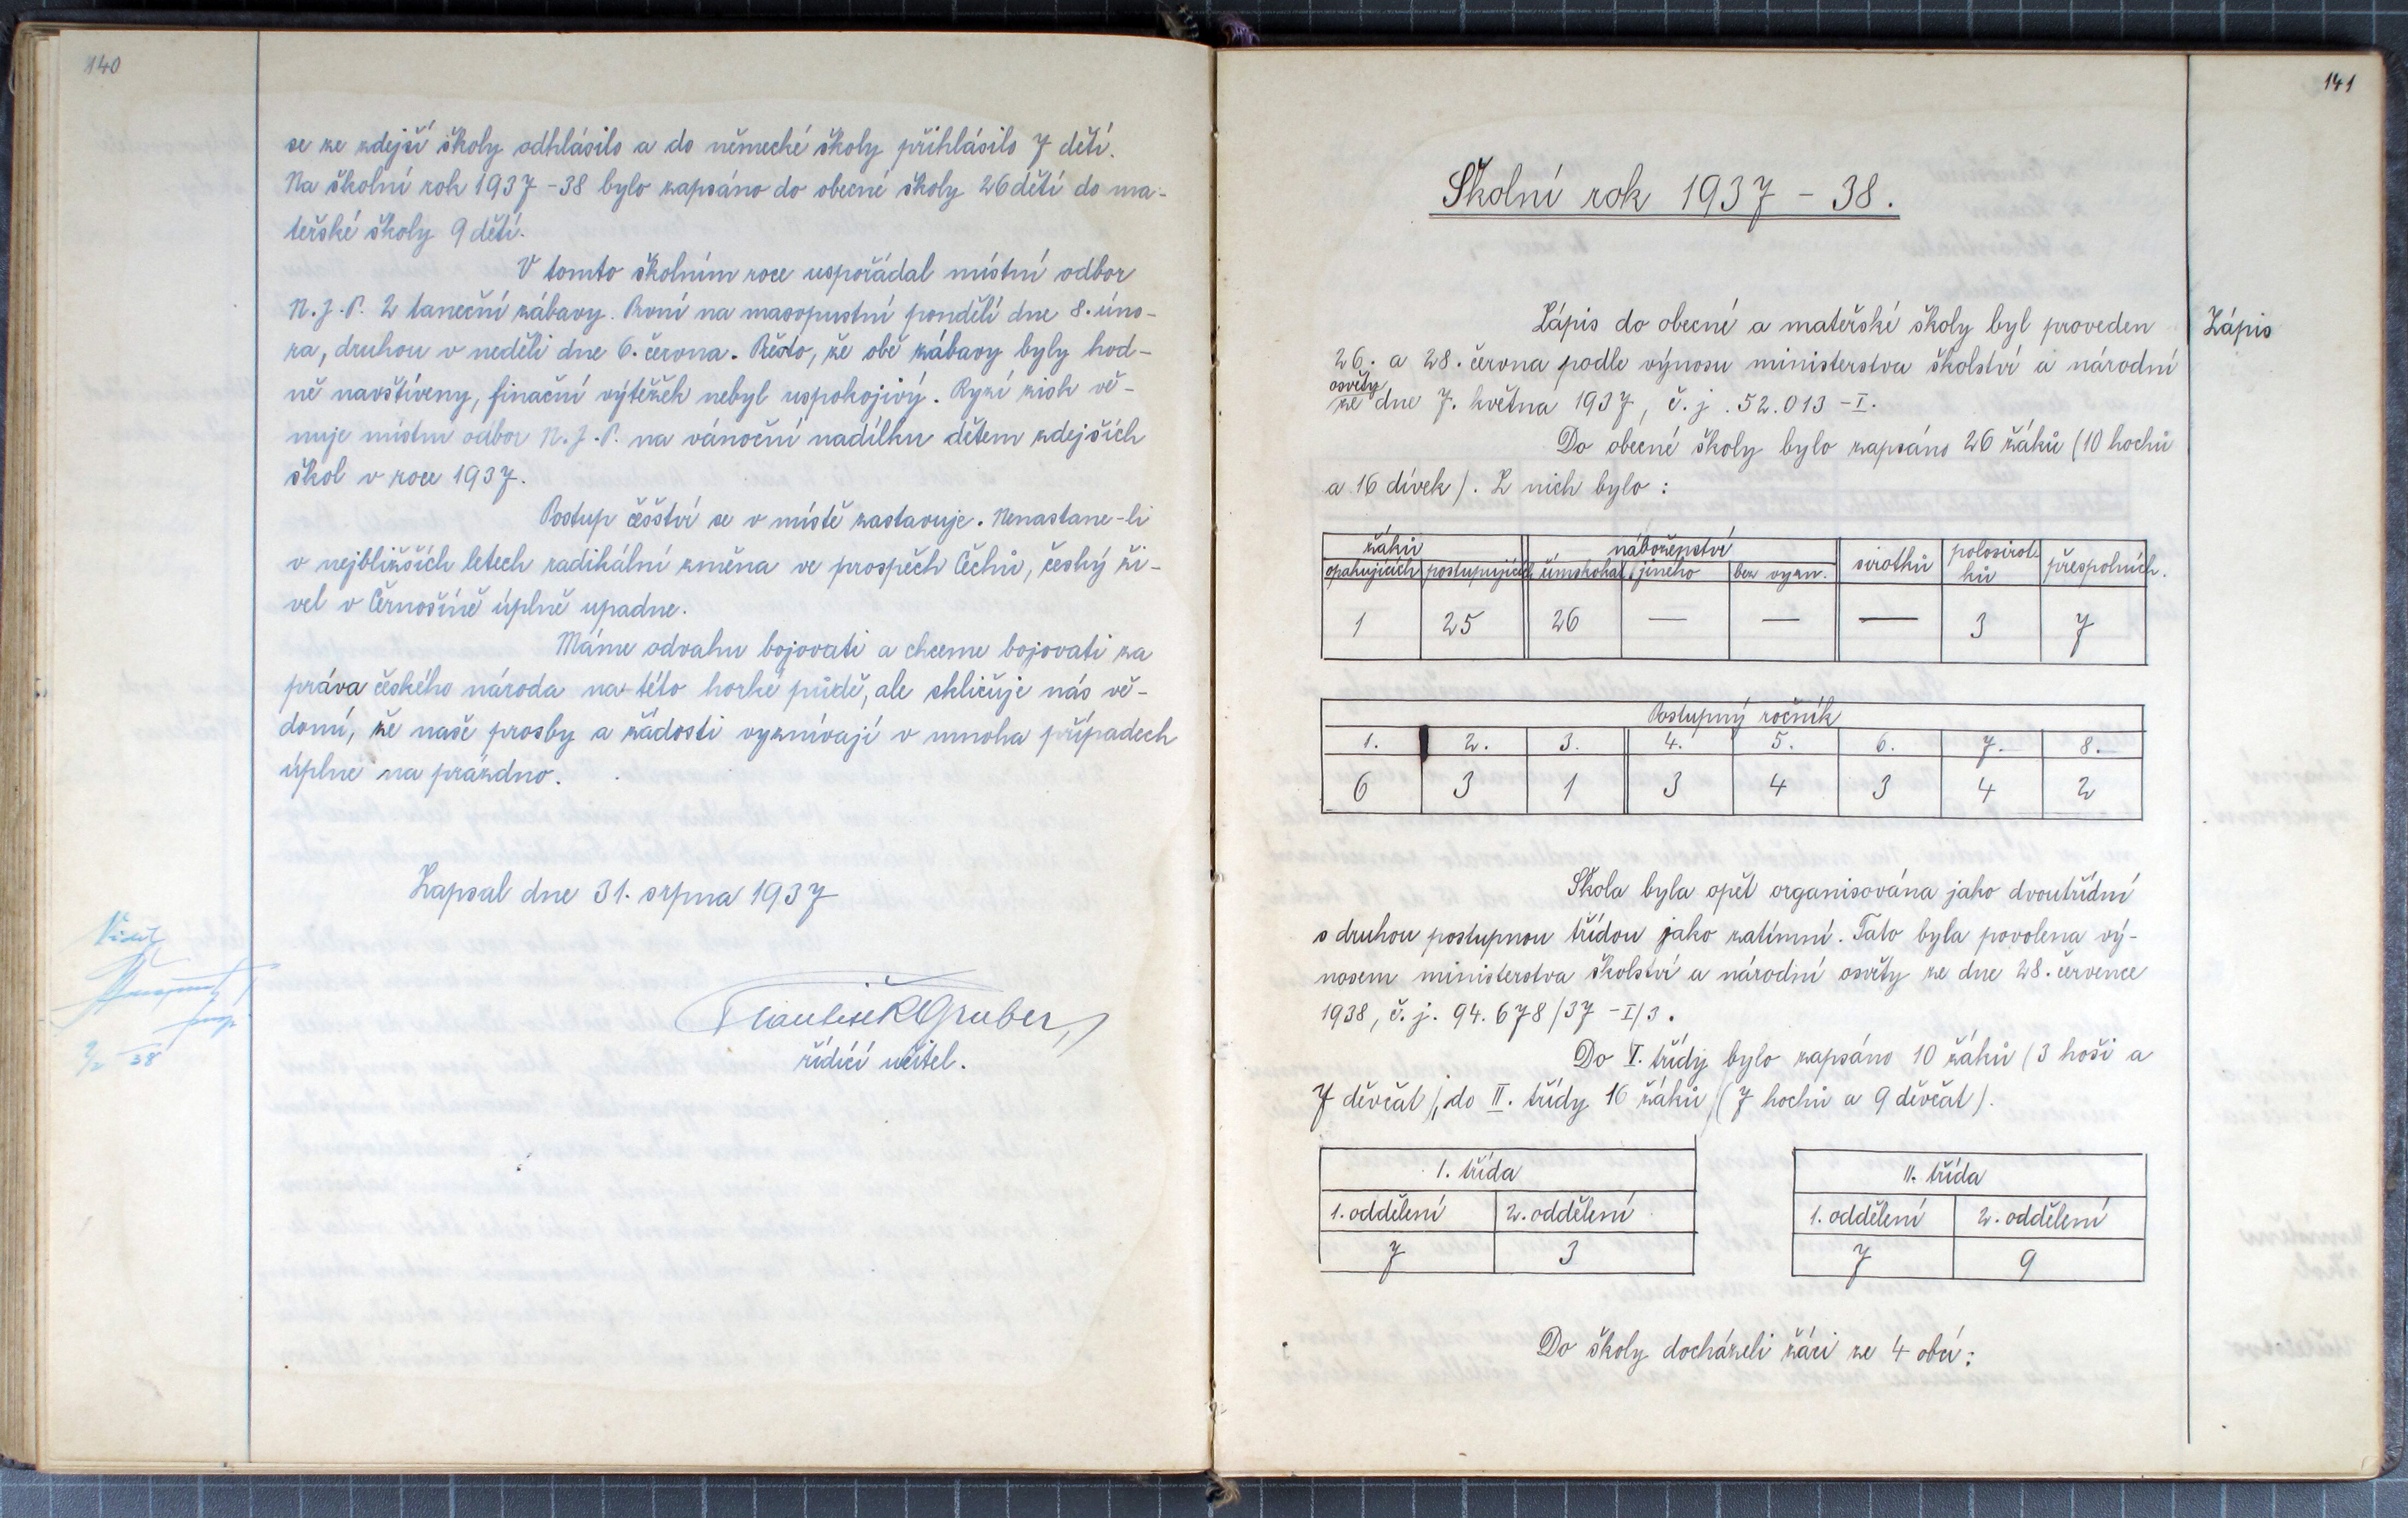 140
se ze zdejší školy odhlásilo a do německé školy přihlásilo 7 dětí.
Na školní rok 1937-38 bylo zapsáno do obecné školy 26 dětí do ma-
teřské školy 9 dětí.
V tomto školním roce uspořádal místní odbor
N.J.P. 2 taneční zábavy. První na masopustní pondělí dne 8. úno-
ra, druhou v neděli dne 6. června. Přesto, že obě zábavy byly hod-
ně navštíveny, finační výtěžek nebyl uspokojivý. Ryzí zisk vě-
nuje místní odbor N.J.P. na vánoční nadílku dětem zdejších
škol v roce 1937.
Postup češství se v místě zastavuje. Nenastane-li
v nejbližších letech radikální změna ve prospěch Čechů, český ži-
vel v Černošíně úplně upadne.
Máme odvahu bojovati a chceme bojovati za
práva českého národa na této horké půdě, ale skličuje nás vě-
domí, že naše prosby a žádosti vyznívají v mnoha případech
úplně na prázdno.
Zapsal dne 31. srpna 1937
František Gruber,
řídící učitel.
38
141
Školní rok 1937 - 38.
Zápis
Zápis do obecné a mateřské školy byl proveden
26. a 28. června podle výnosu ministerstva školství a národní
osvěty
ze dne 7. května 1937, č. j. 52.013 - I.
Do obecné školy bylo zapsáno 26 žáků (10 hochů
a 16 dívek). Z nich bylo:
žáků náboženství sirotků polosirot-ků přespolních.
opakujících postupujících římskokat. jiného bez vyzn.
1 25 26 — — — 3 7
Postupný ročník
1. 2. 3. 4. 5. 6. 7. 8.
6 3 1 3 4 3 4 2
Škola byla opět organisována jako dvoutřídní
s druhou postupnou třídou jako zatímní. Tato byla povolena vý-
nosem ministerstva školství a národní osvěty ze dne 28. července
1938, č. j. 94.678/37 - I/3.
Do I. třídy bylo zapsáno 10 žáků (3 hoši a
7 děvčat), do II. třídy 16 žáků (7 hochů a 9 děvčat).
I. třída
1. oddělení 2. oddělení
7 3
II. třída
1. oddělení 2. oddělení
7 9
Do školy docházeli žáci ze 4 obcí: